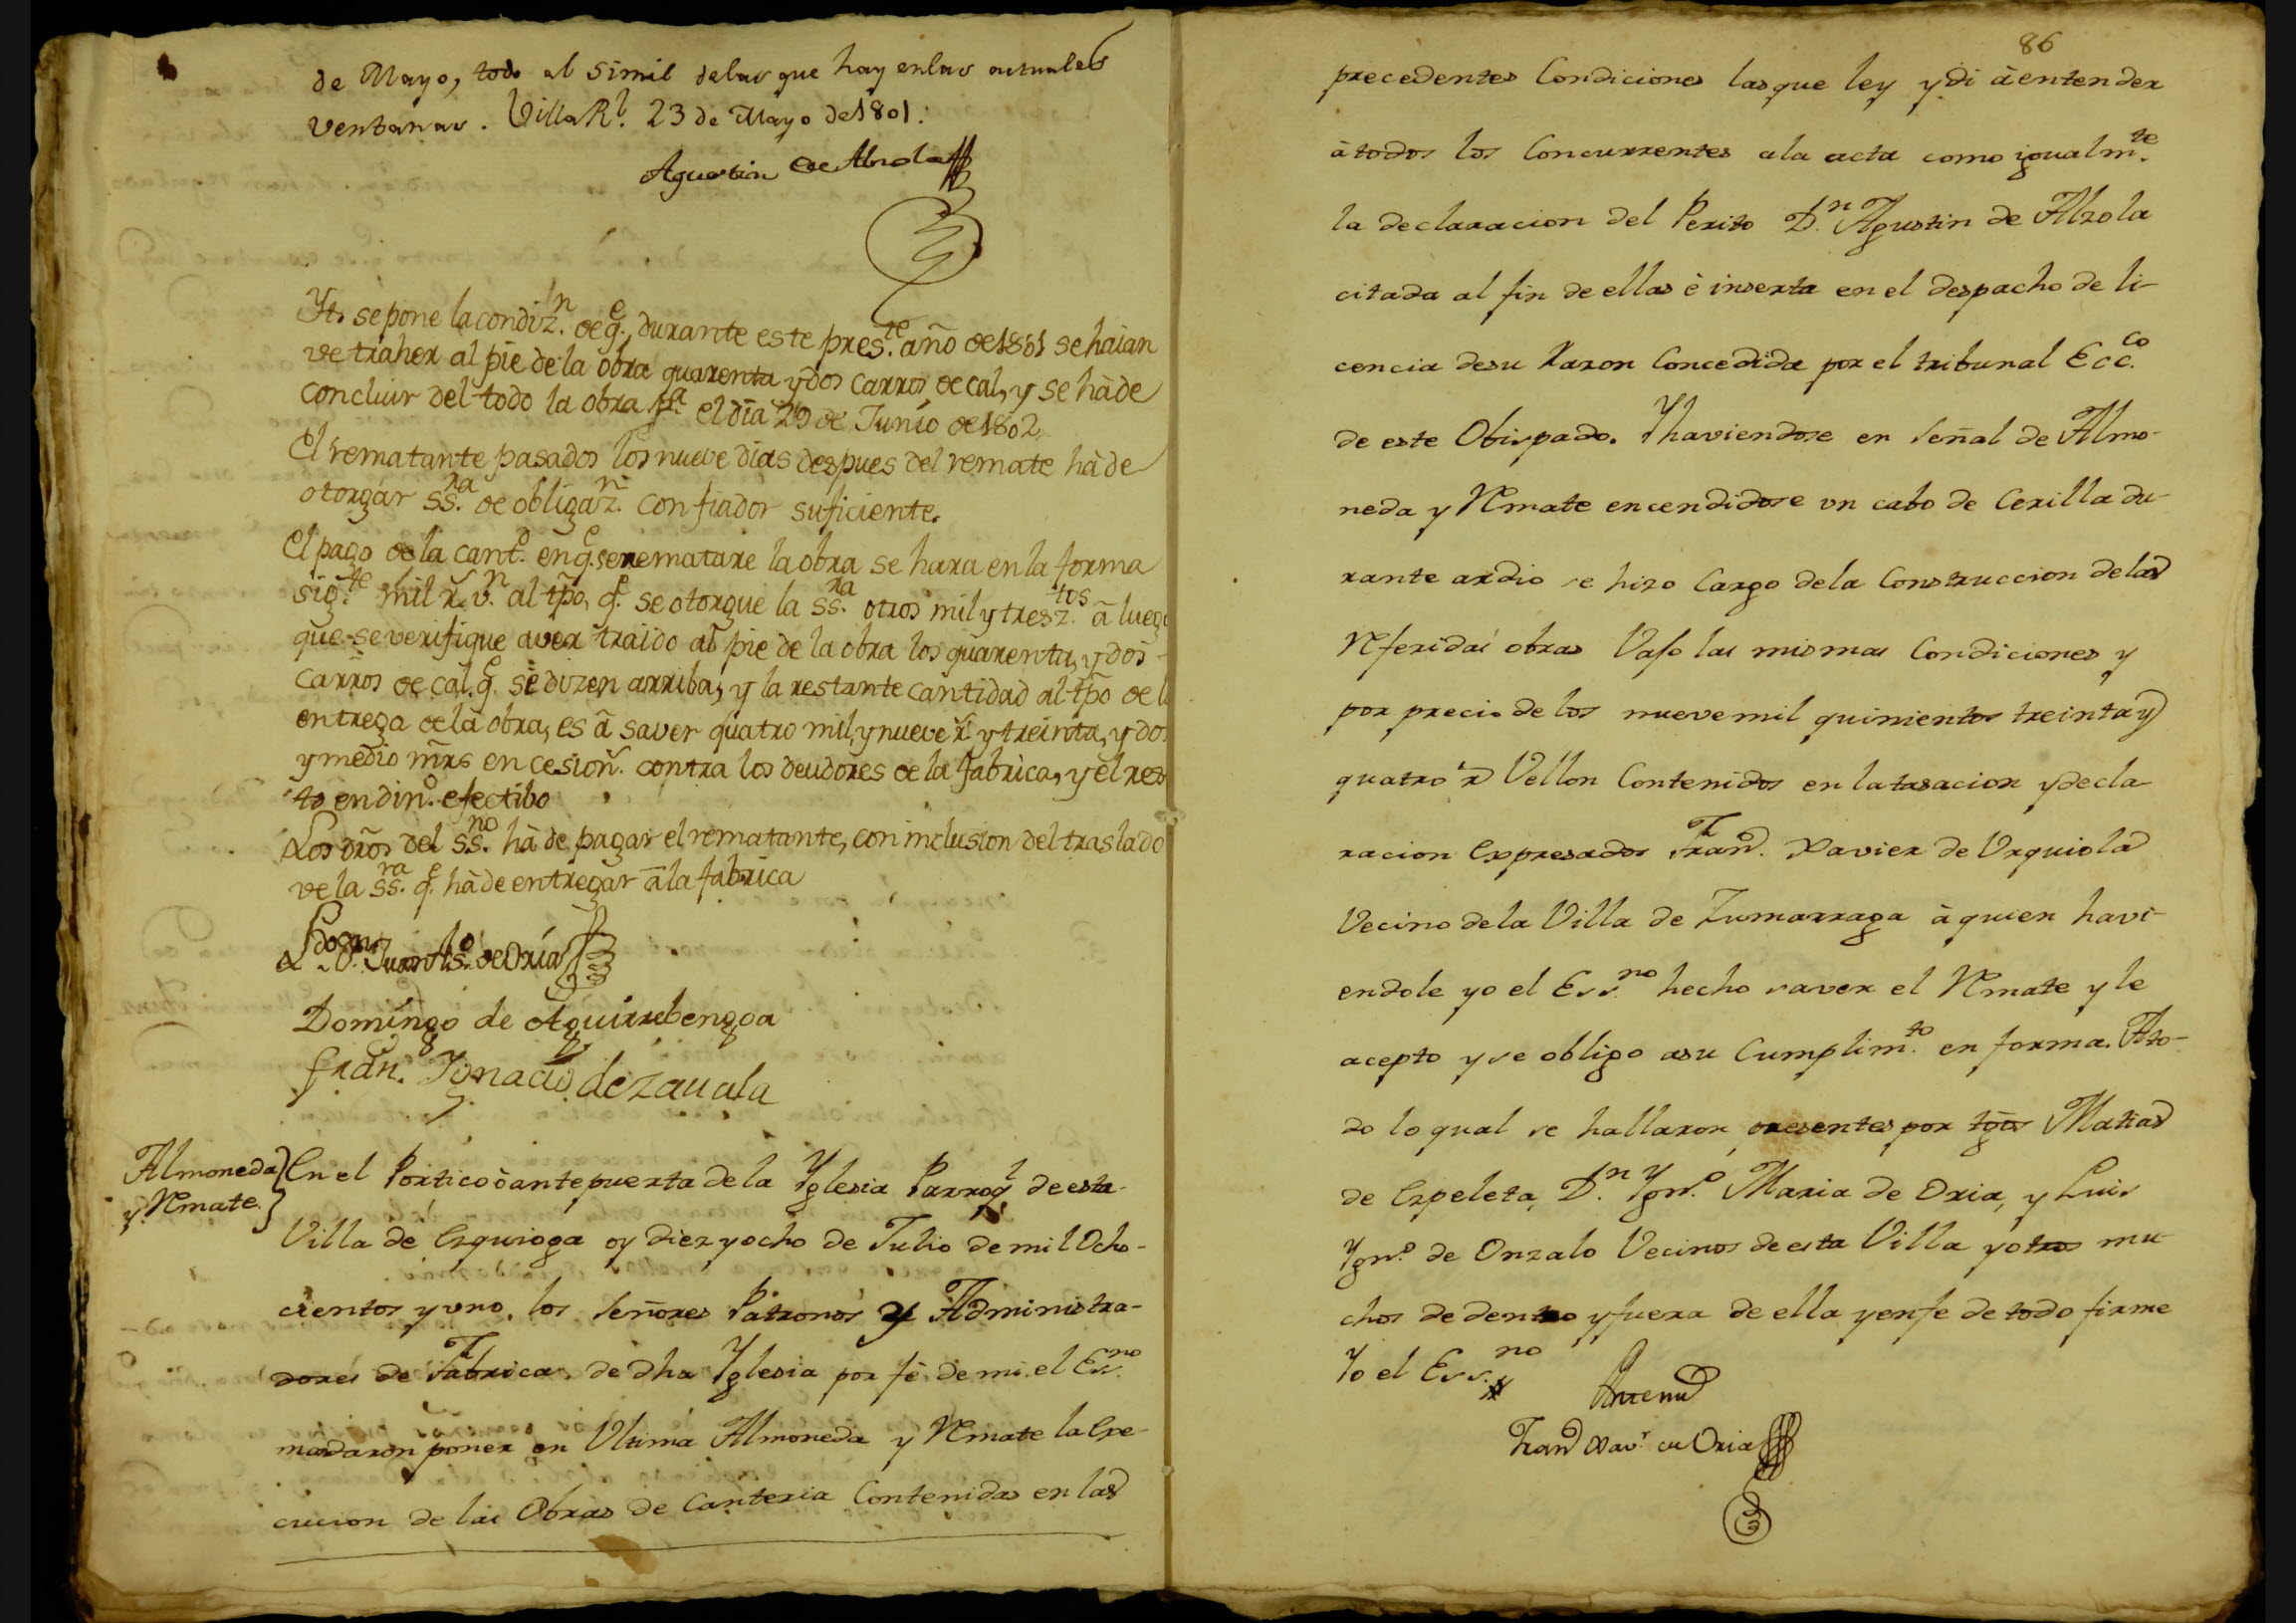 de Mayo, todo al simil delas que hay enlas actuales
Ventanas. Villa Rl. 23 de Mayo de 1801.
Agustin de Alzola
Yt. se pone la condizn. de qe. durante este preste. año de 1801 se haian
de traher al pie de la obra quarenta y dos carros de cal, y se hà de
concluir del todo la obra pa. el dia 29 de Junio de 1802
El rematante pasados los nueve dias despues del remate hà de
otorgar ssra. de obligazn. con fiador suficiente.
El pago de la cantd. en qe. se rematare la obra se hara en la forma
sigte. mil rs. vn. al tpo, qe. se otorgue la ssra. otros mil y tresztos. ã luego
que se verifique aver traido al pie de la obra los quarenta, y dos
carros de cal qe. se dizen arriba, y la restante cantidad al tpo de l
entrega de la obra, es ã saver quatro mil, y nueve rs. y treinta, y dos
y medio mrs en cesion. contra los deudores de la fabrica, y el res
to en dino. efectibo
Los dros del ssno. hà de pagar el rematante, con inclusion del traslado
de la ssra. qe. hà de entregar ã la fabrica
Domingo de Aguirrebengoa
Fran. Ygnacio de Zavala
Almoneda
y Remate.
En el Portico ò antepuerta de la Yglesia Parroql de esta
Villa de Ezquioga oy diez y ocho de Julio de mil Ocho-
cientos y uno, los Señores Patronos y Administra-
dores de Fabrica de dha Yglesia por fè de mi el Essno.
mandaron poner en Ultima Almoneda y Remate la Exe-
cucion de las Obras de Canteria Contenidas en las
86
precedentes Condiciones las que ley y di à entender
à todos los Concurrentes a la acta como igualmte.
la declaracion del Perito Dn. Agustin de Alzola
citada al fin de ellas è inserta en el despacho de li-
cencia de su Razon Concedida por el tribunal Ecco.
de este Obispado. Y haviendose en Señal de Almo-
neda y Remate encendidose un cabo de Cerilla du-
rante ardio se hizo Cargo de la Construccion de las
Referidas obras Vajo las mismas Condiciones y
por precio de los nueve mil quinientos treinta y
quatro rs Vellon Contenidos en la tasacion y decla
racion Expresados Frano. Xavier de Urquiola
Vecino de la Villa de Zumarraga à quien havi-
endole yo el Essno. hecho saver el Remate y le
acepto y se obligo a su Cumplimto. en forma. A to-
do lo qual se hallaron presentes por tgos Matias
de Ezpeleta, Dn. Ygno. Maria de Oria, y Luis
Ygno. de Onzalo Vecinos de esta Villa y otros mu-
chos de dentro y fuera de ella y en fe de todo firme
Yo el Essno.
Ante mi
Frano Xavr. de Oria